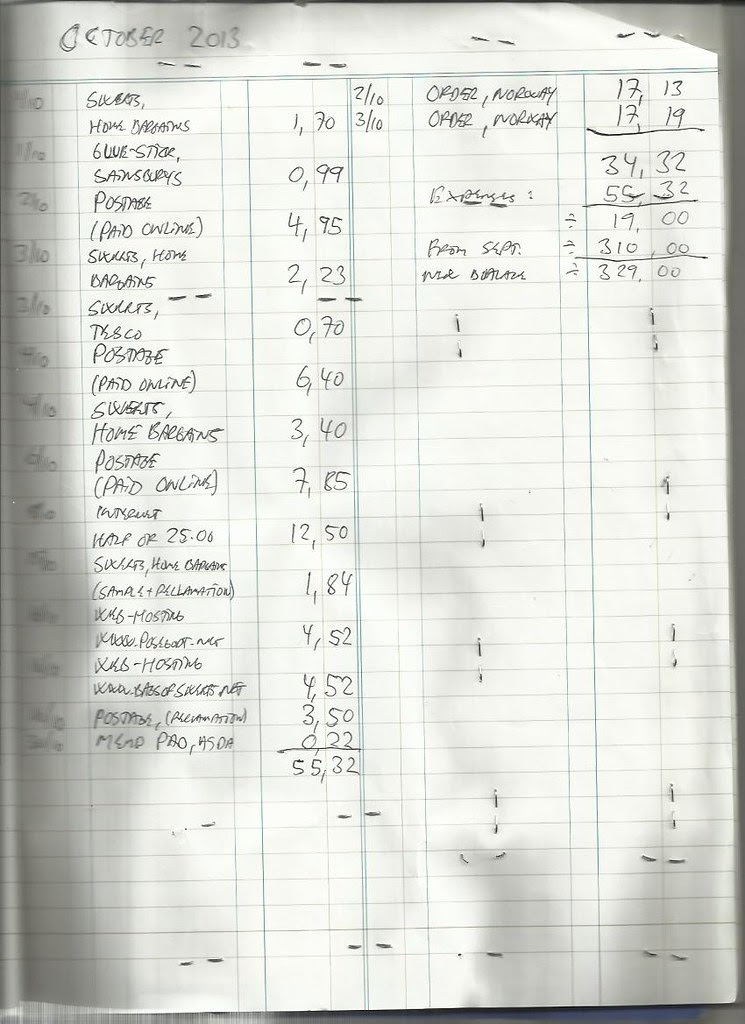 OCTOBER 2013
SWEETS,
HOME BARGAINS 1,70
1/10 GLUE-STICK,
SAINSBURYS 0,99
2/10 POSTAGE
(PAID ONLINE) 4,95
3/10 SWEETS, HOME
BARGAINS 2,23
3/10 SWEETS,
TESCO 0,70
POSTAGE
(PAID ONLINE) 6,40
4/10 SWEETS,
HOME BARGAINS 3,40
POSTAGE
(PAID ONLINE) 7,85
INTERNET
HALF OF 25.00 12,50
SWEETS, HOME BARGAINS
(SAMPLE + RECLAMATION) 1,84
WEB-HOSTING
4,52
WEB-HOSTING
WWW.BAGSOFSWEETS.NET 4,52
POSTAGE, (RECLAMATION) 3,50
MEMO PAD, ASDA 0,22
55,32
2/10 ORDER, NORWAY 17,13
3/10 ORDER, NORWAY 17,19
34,32
EXPENSES: 55,32
÷ 19,00
FROM SEPT. ÷ 310,00
NEW BALANCE ÷ 329,00